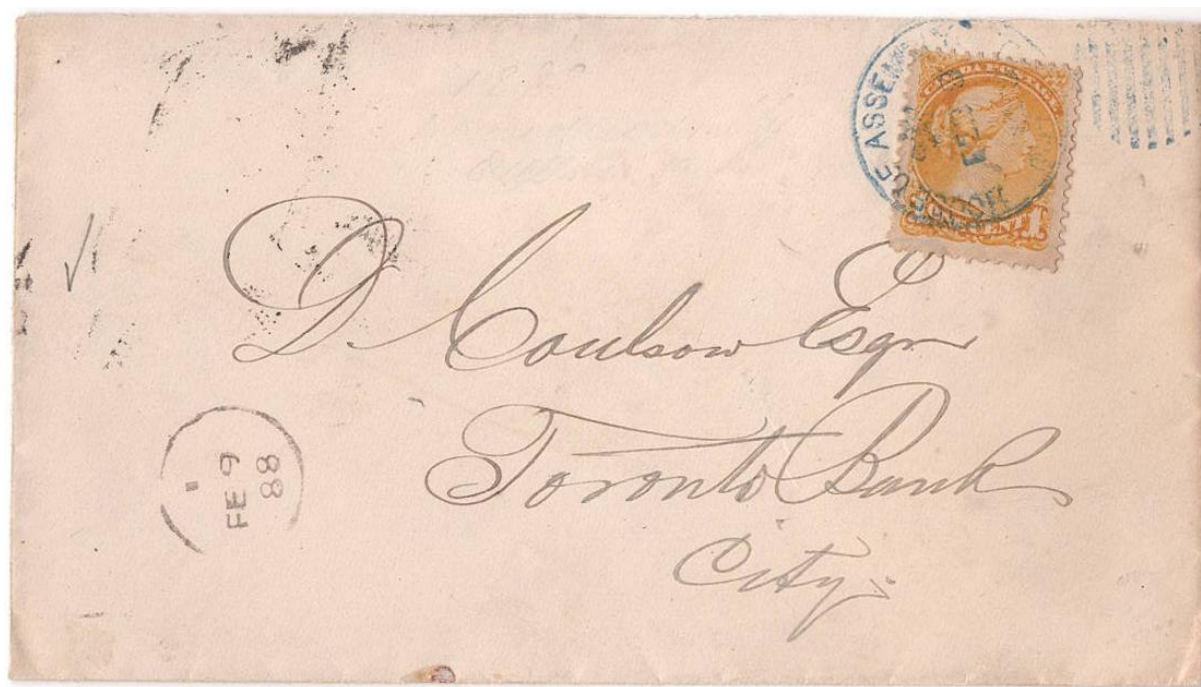 CANADA POSTAGE
ONE CENT 1
D. Coulson Esqr
Toronto Bank
City.
FE 9
88